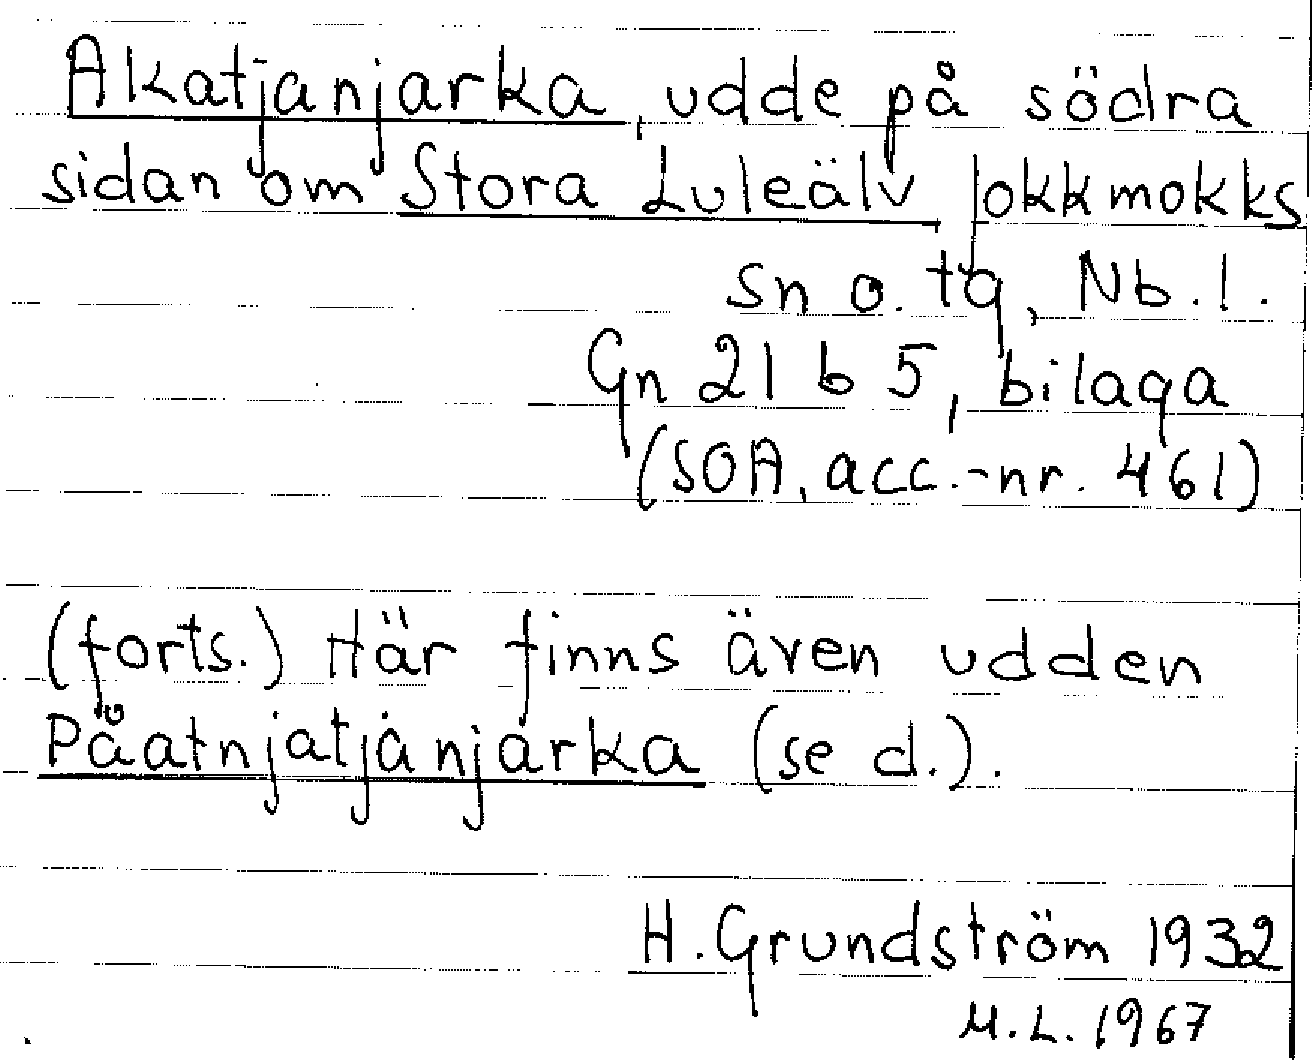 Akatjanjarka, udde på södra
sidan om Stora Luleälv Jokkmokks
sn o. tg, Nb.l.
Gn 21 b 5, bilaga
(SOA, acc.-nr. 461)
(forts.) Här finns även udden
Påatnjatjanjarka (se d.).
H. Grundström 1932
M.L. 1967